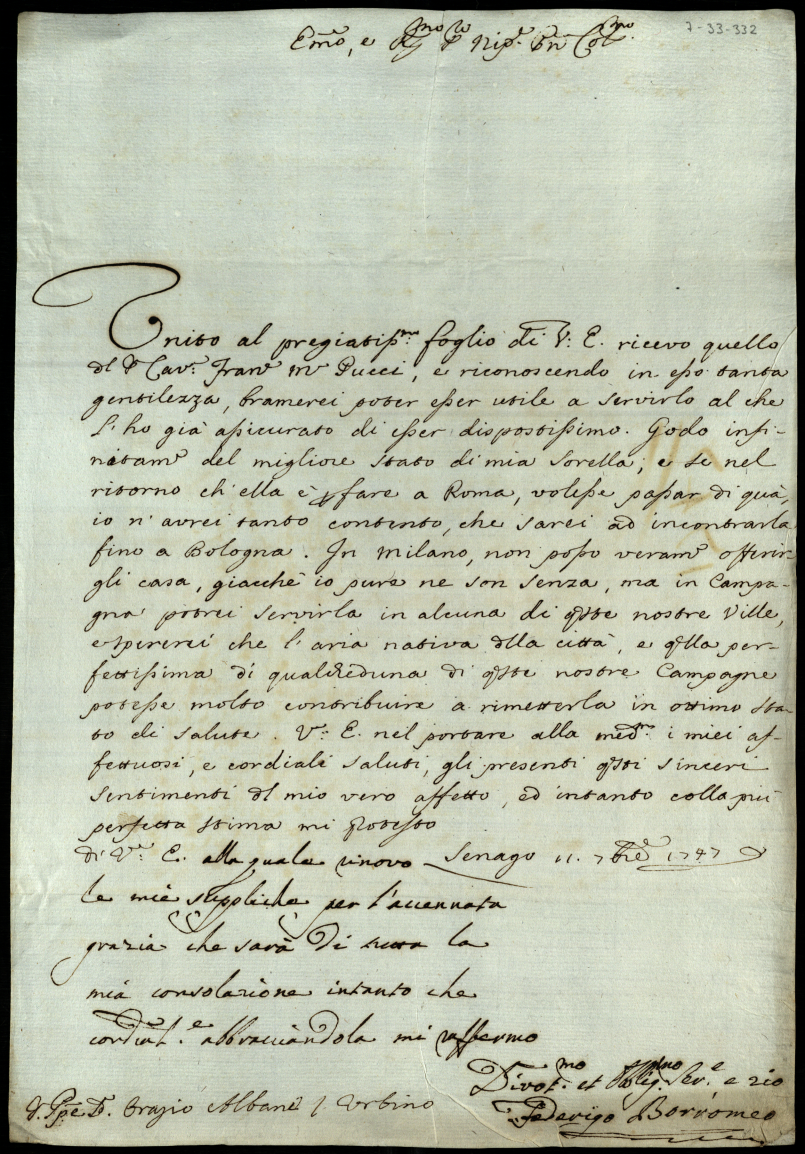 7-33-332
Emo, e Rmo Nip. Pn Colmo
Unito al pregiatissmo foglio di V: E. ricevo quello
dl Cav: Franc Ma Pucci, e riconoscendo in esso tanta
gentilezza, bramerei poter esser utile a servirlo al che
l'ho già assicurato di esser dispostissimo. Godo infi-
nitame del migliore stato di mia Sorella; e se nel
ritorno ch'ella è p fare a Roma, volesse passar di quà,
io n'avrei tanto contento, che sarei ad incontrarla
fino a Bologna. In Milano, non posso verame offerir
gli casa, giacchè io pure ne son senza, ma in Campa-
gna potrei servirla in alcuna di qste nostre Ville,
e spererei che l'aria nativa dlla città, e qlla per-
fettissima di qualcheduna di qste nostre Campagne
potesse molto contribuire a rimetterla in ottimo sta-
to di salute. V: E. nel portare alla meda: i miei af-
fettuosi, e cordiali saluti, gli presenti qsti sinceri
sentimenti dl mio vero affetto, ed intanto colla più
perfetta stima mi protesto
di V: E. alla quale rinovo Senago 11. 7bre 1747
le mie suppliche per l'accennata
grazia che sarà di tutta la
mia consolazione intanto che
cordialte abbracciandola mi raffermo
Divotmo et Obligmo Sere e zio
Federigo Borromeo
S. Ppe D. Orazio Albani / Urbino